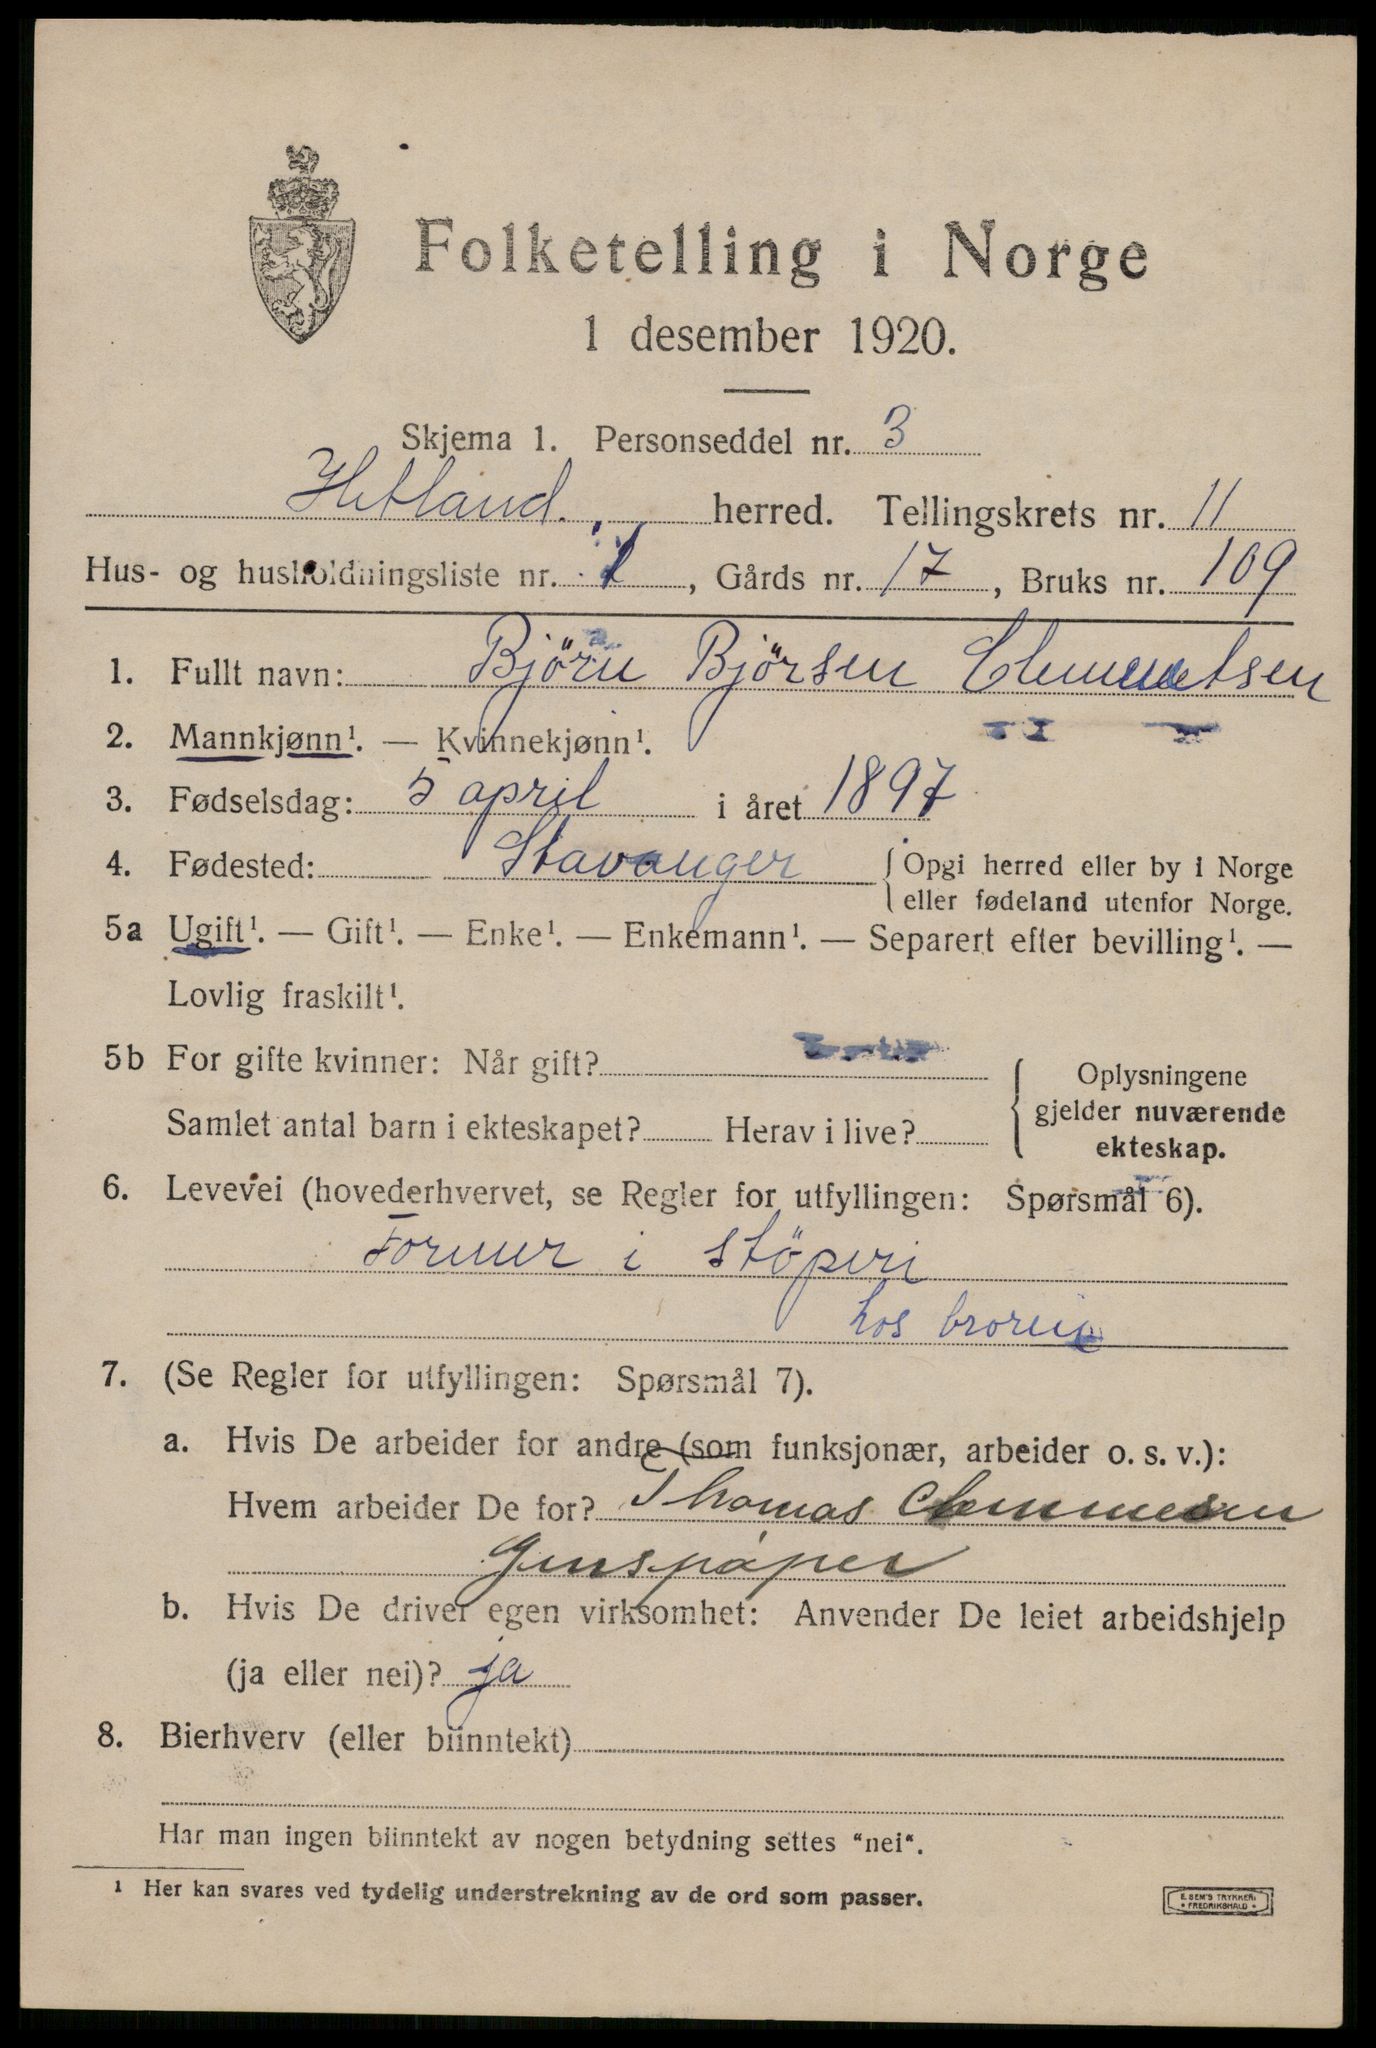 Folketelling i Norge
1 desember 1920.
Skjema 1. Personseddel nr. 3
Hetland. herred. Tellingskrets nr. 11
Hus- og husholdningsliste nr. 1, Gårds nr. 17, Bruks nr. 109
1. Fullt navn: Björn Björsen Clemmetsen
2. Mannkjønn¹. — Kvinnekjønn¹.
3. Fødselsdag: 5 april i året 1897
4. Fødested: Stavanger { Opgi herred eller by i Norge
eller fødeland utenfor Norge.
5a Ugift¹. — Gift¹. — Enke¹. — Enkemann¹. — Separert efter bevilling¹. —
Lovlig fraskilt¹.
5b For gifte kvinner: Når gift?
Samlet antal barn i ekteskapet? Herav i live?
Oplysningene
gjelder nuværende
ekteskap.
6. Levevei (hovederhvervet, se Regler for utfyllingen: Spørsmål 6).
Former i stöperi
hos broren
7. (Se Regler for utfyllingen: Spørsmål 7).
a. Hvis De arbeider for andre (som funksjonær, arbeider o. s. v.):
Hvem arbeider De for? Thomas
b. Hvis De driver egen virksomhet: Anvender De leiet arbeidshjelp
(ja eller nei)? ja
8. Bierhverv (eller biinntekt)
Har man ingen biinntekt av nogen betydning settes "nei".
¹ Her kan svares ved tydelig understrekning av de ord som passer.
E. SEM'S TRYKKERI
• FREDRIKSHALD •